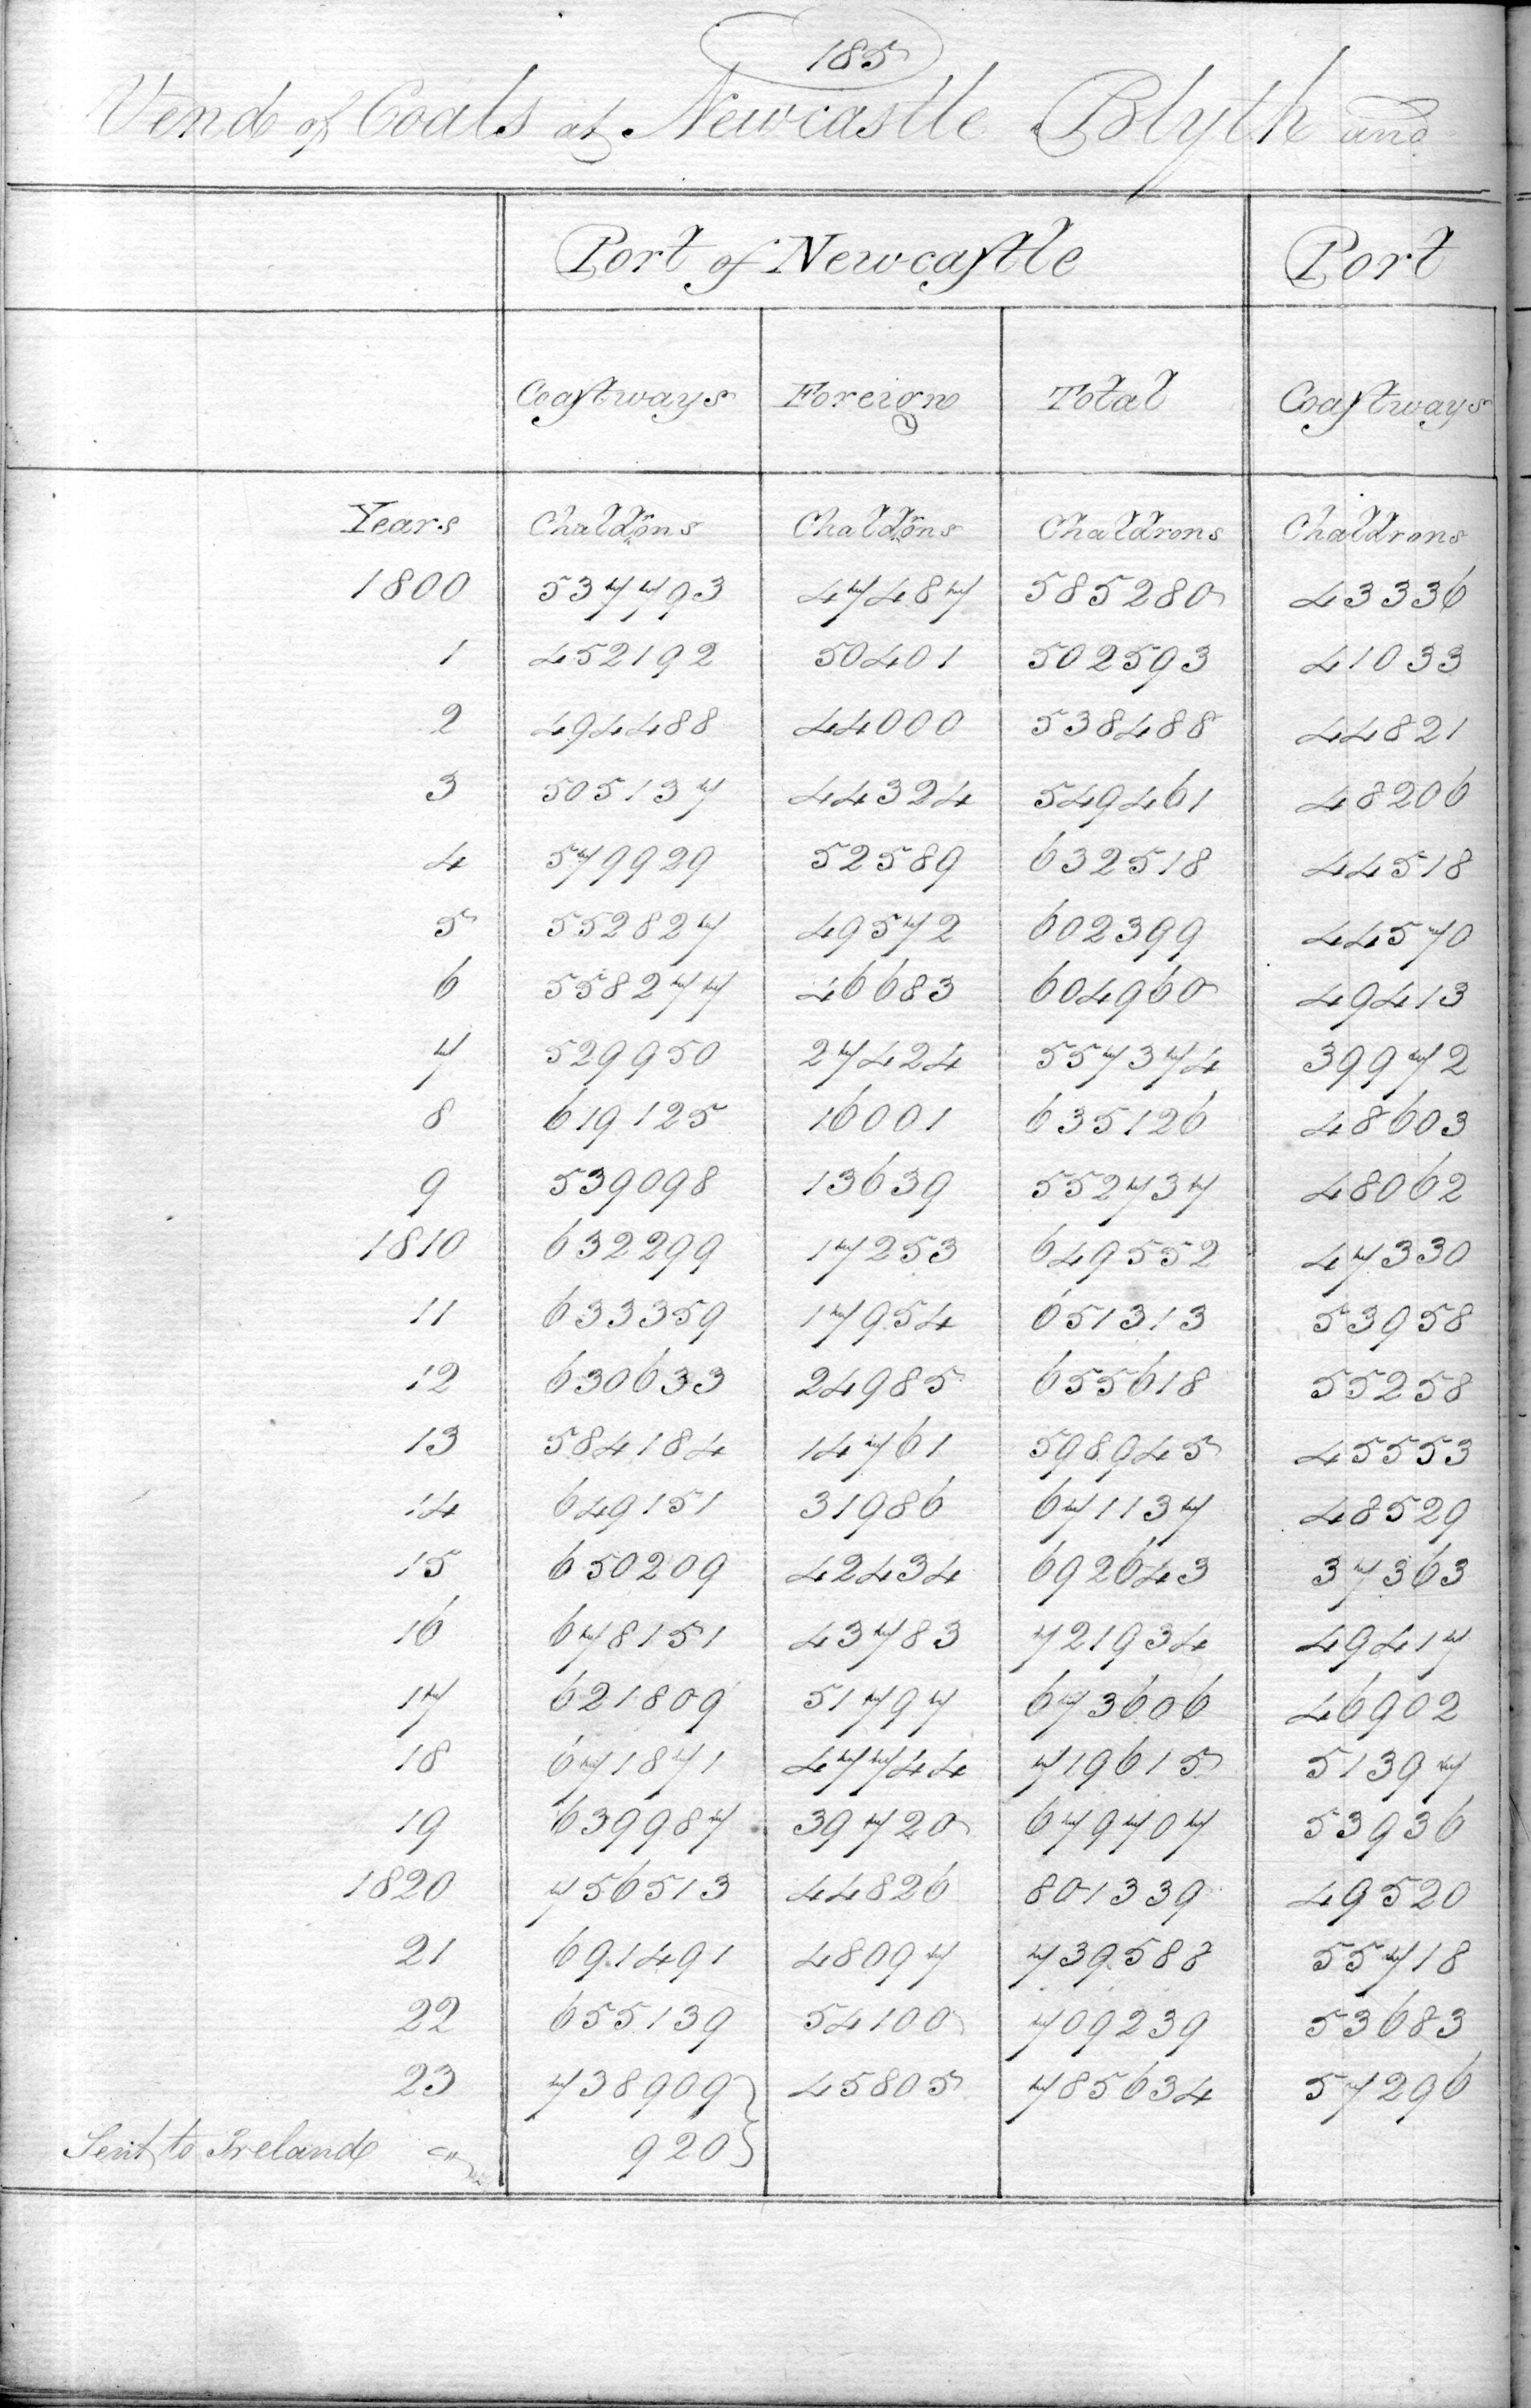 185
Vend of Coals at Newcastle Blyth and
Port of Newcastle Port
Coastways Foreign Total Coastways
Years Chaldrons Chaldrons Chaldrons Chaldrons
1800 537793 47487 585280 43336
1 452192 50401 502593 41033
2 494488 44000 538488 44821
3 505137 44324 549461 48206
4 579929 52589 632518 44518
5 552827 49572 602399 44570
6 558277 46683 604960 49413
7 529950 27424 557374 39972
8 619125 16001 635126 48603
9 539098 13639 552737 48062
1810 632299 17253 649552 47330
11 633359 17954 651313 53958
12 630633 24985 655618 55258
13 584184 14761 598945 45553
14 649151 31986 671137 48529
15 650209 42434 692643 37363
16 678151 43783 721934 49417
17 621809 51797 673606 46902
18 671871 47744 719615 51397
19 639987 39720 679707 53936
1820 756513 44826 801339 49520
21 691491 48097 739588 55718
22 655139 54100 709239 53683
23 738909 45805 785634 57296
Sent to Ireland 920